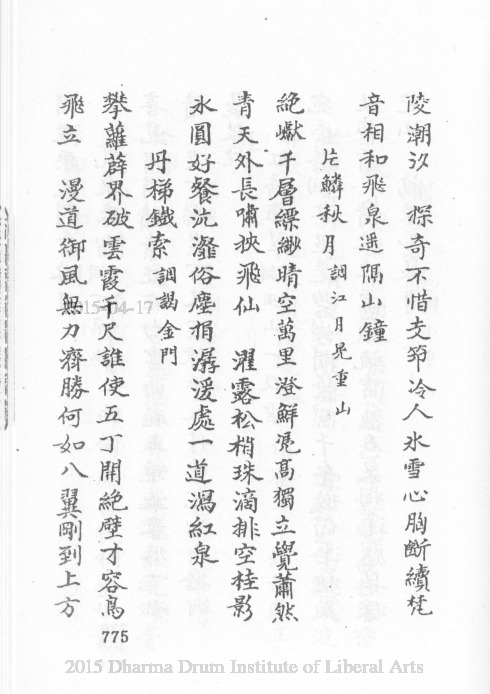 陵潮汐　探奇不惜支笻冷人氷雪心胸斷續梵
音相和飛泉遥隔山鐘
片鱗秋月 調江月晃重山
絶巘千層縹緲晴空萬里澄鮮凭高獨立覺蕭然
青天外長嘯挾飛仙　濯露松梢珠滴排空桂影
氷圓好餐沆瀣俗塵捐潺湲處一道瀉紅泉
丹梯鐵索 調謁金門
攀蘿薜界破雲霞千尺誰使五丁開絶壁才容鳥
飛立　漫道御風無力濟勝何如八翼剛到上方
775
15-04-17
2015 Dharma Drum Institute of Liberal Arts